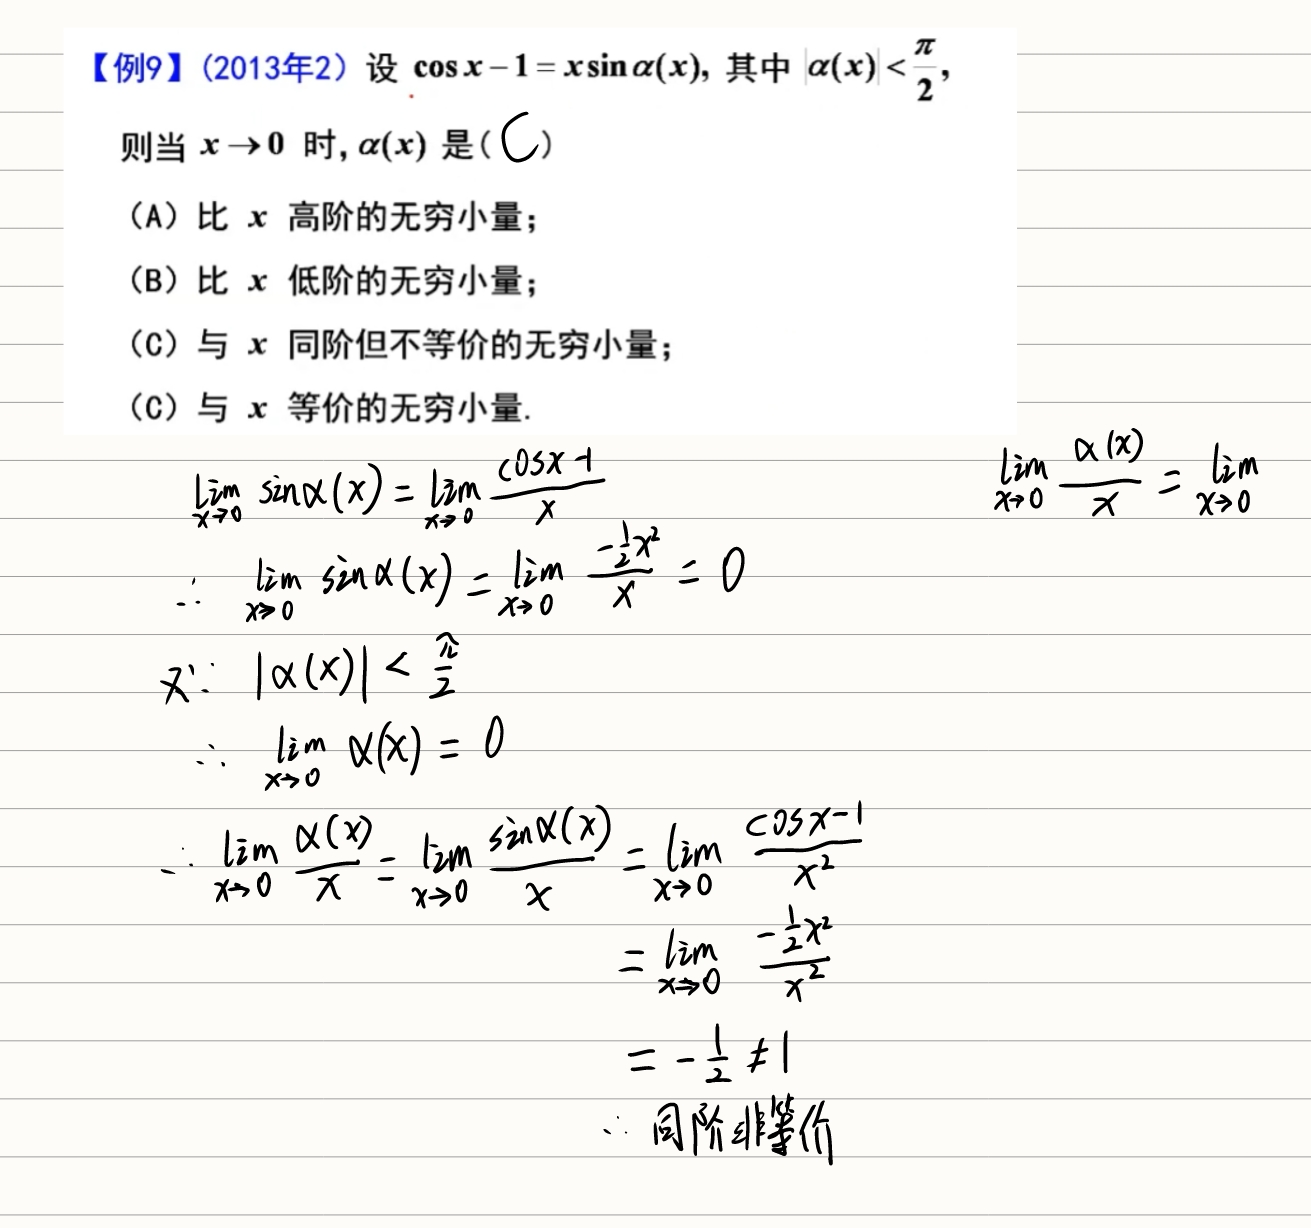 【例9】(2013年2) 设 cos x − 1 = x sin α(x), 其中 |α(x)| < π/2,
则当 x → 0 时, α(x) 是( C )
(A) 比 x 高阶的无穷小量;
(B) 比 x 低阶的无穷小量;
(C) 与 x 同阶但不等价的无穷小量;
(C) 与 x 等价的无穷小量.
lim x→0 sinα(x) = lim x→0 (cosx-1)/x
lim x→0 α(x)/x = lim x→0
∴ lim x→0 sinα(x) = lim x→0 (-1/2 x²)/x = 0
又∵ |α(x)| < π/2
∴ lim x→0 α(x) = 0
∴ lim x→0 α(x)/x = lim x→0 sinα(x)/x = lim x→0 (cosx-1)/x²
= lim x→0 (-1/2 x²)/x²
= -1/2 ≠ 1
∴ 同阶非等价